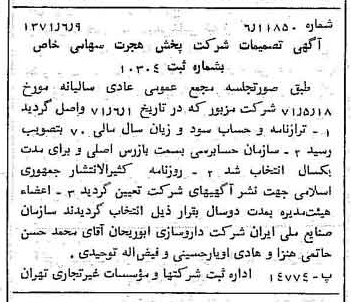 شماره ۶/۱۱۸۵۰ ۱۳۷۱/۶/۹
آگهی تصمیمات شرکت پخش هجرت سهامی خاص
بشماره ثبت ۱۰۳۰۴
طبق صورتجلسه مجمع عمومی عادی سالیانه مورخ
۷۱/۵/۱۸ شرکت مزبور که در تاریخ ۷۱/۶/۱ واصل گردید
۱ - ترازنامه و حساب سود و زیان سال مالی ۷۰ بتصویب
رسید ۲ - سازمان حسابرسی بسمت بازرس اصلی و برای مدت
یکسال انتخاب شد ۲ - روزنامه کثیرالانتشار جمهوری
اسلامی جهت نشر آگهیهای شرکت تعیین گردید ۳ - اعضاء
هیئت‌مدیره بمدت دوسال بقرار ذیل انتخاب گردیدند سازمان
صنایع ملی ایران شرکت داروسازی ابوریحان آقای محمد حسن
حاتمی هنزا و هادی اویارحسینی و فیض‌اله توحیدی.
پ - ۱۴۷۷۴ اداره ثبت شرکتها و مؤسسات غیرتجاری تهران